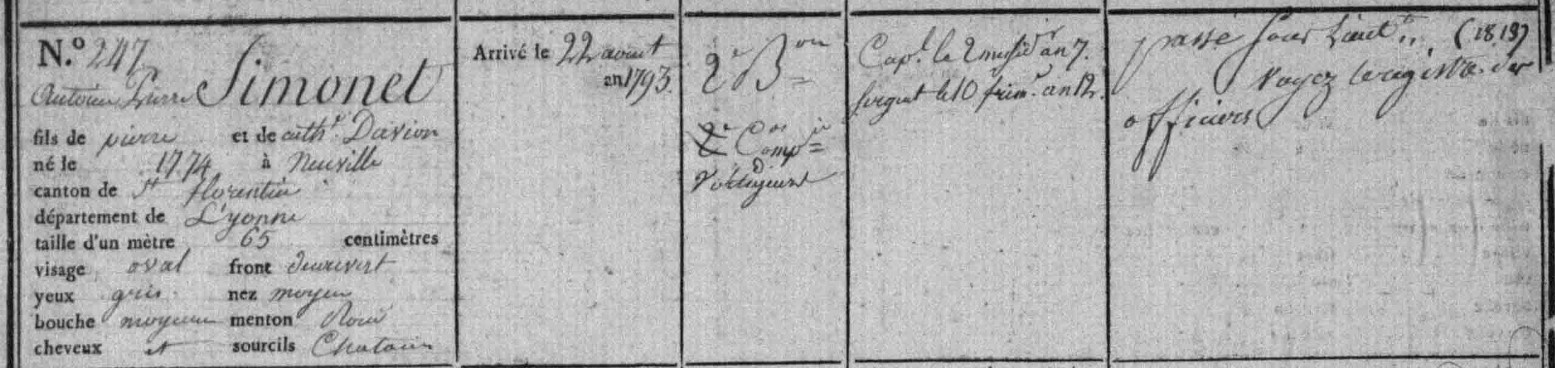 N.º 247
Antoine Pierre Simonet
fils de pierre et de cath.e Davion
né le 1774 à Neuville
canton de St florentin
département de L'yonne
taille d'un mètre 65 centimètres
visage oval front decouvert
yeux gris nez moyen
bouche moyenne menton Rond
cheveux et sourcils Chatain
Arrivé le 22 aout
an 1793.
2e Bon
2e Comp.ie
Voltigeurs
Cap.l le 2 messid.r an 7.
sergent le 10 frim.e an 12.
passé Sous Lieut.t (1818)
Voyez le registre des
officiers